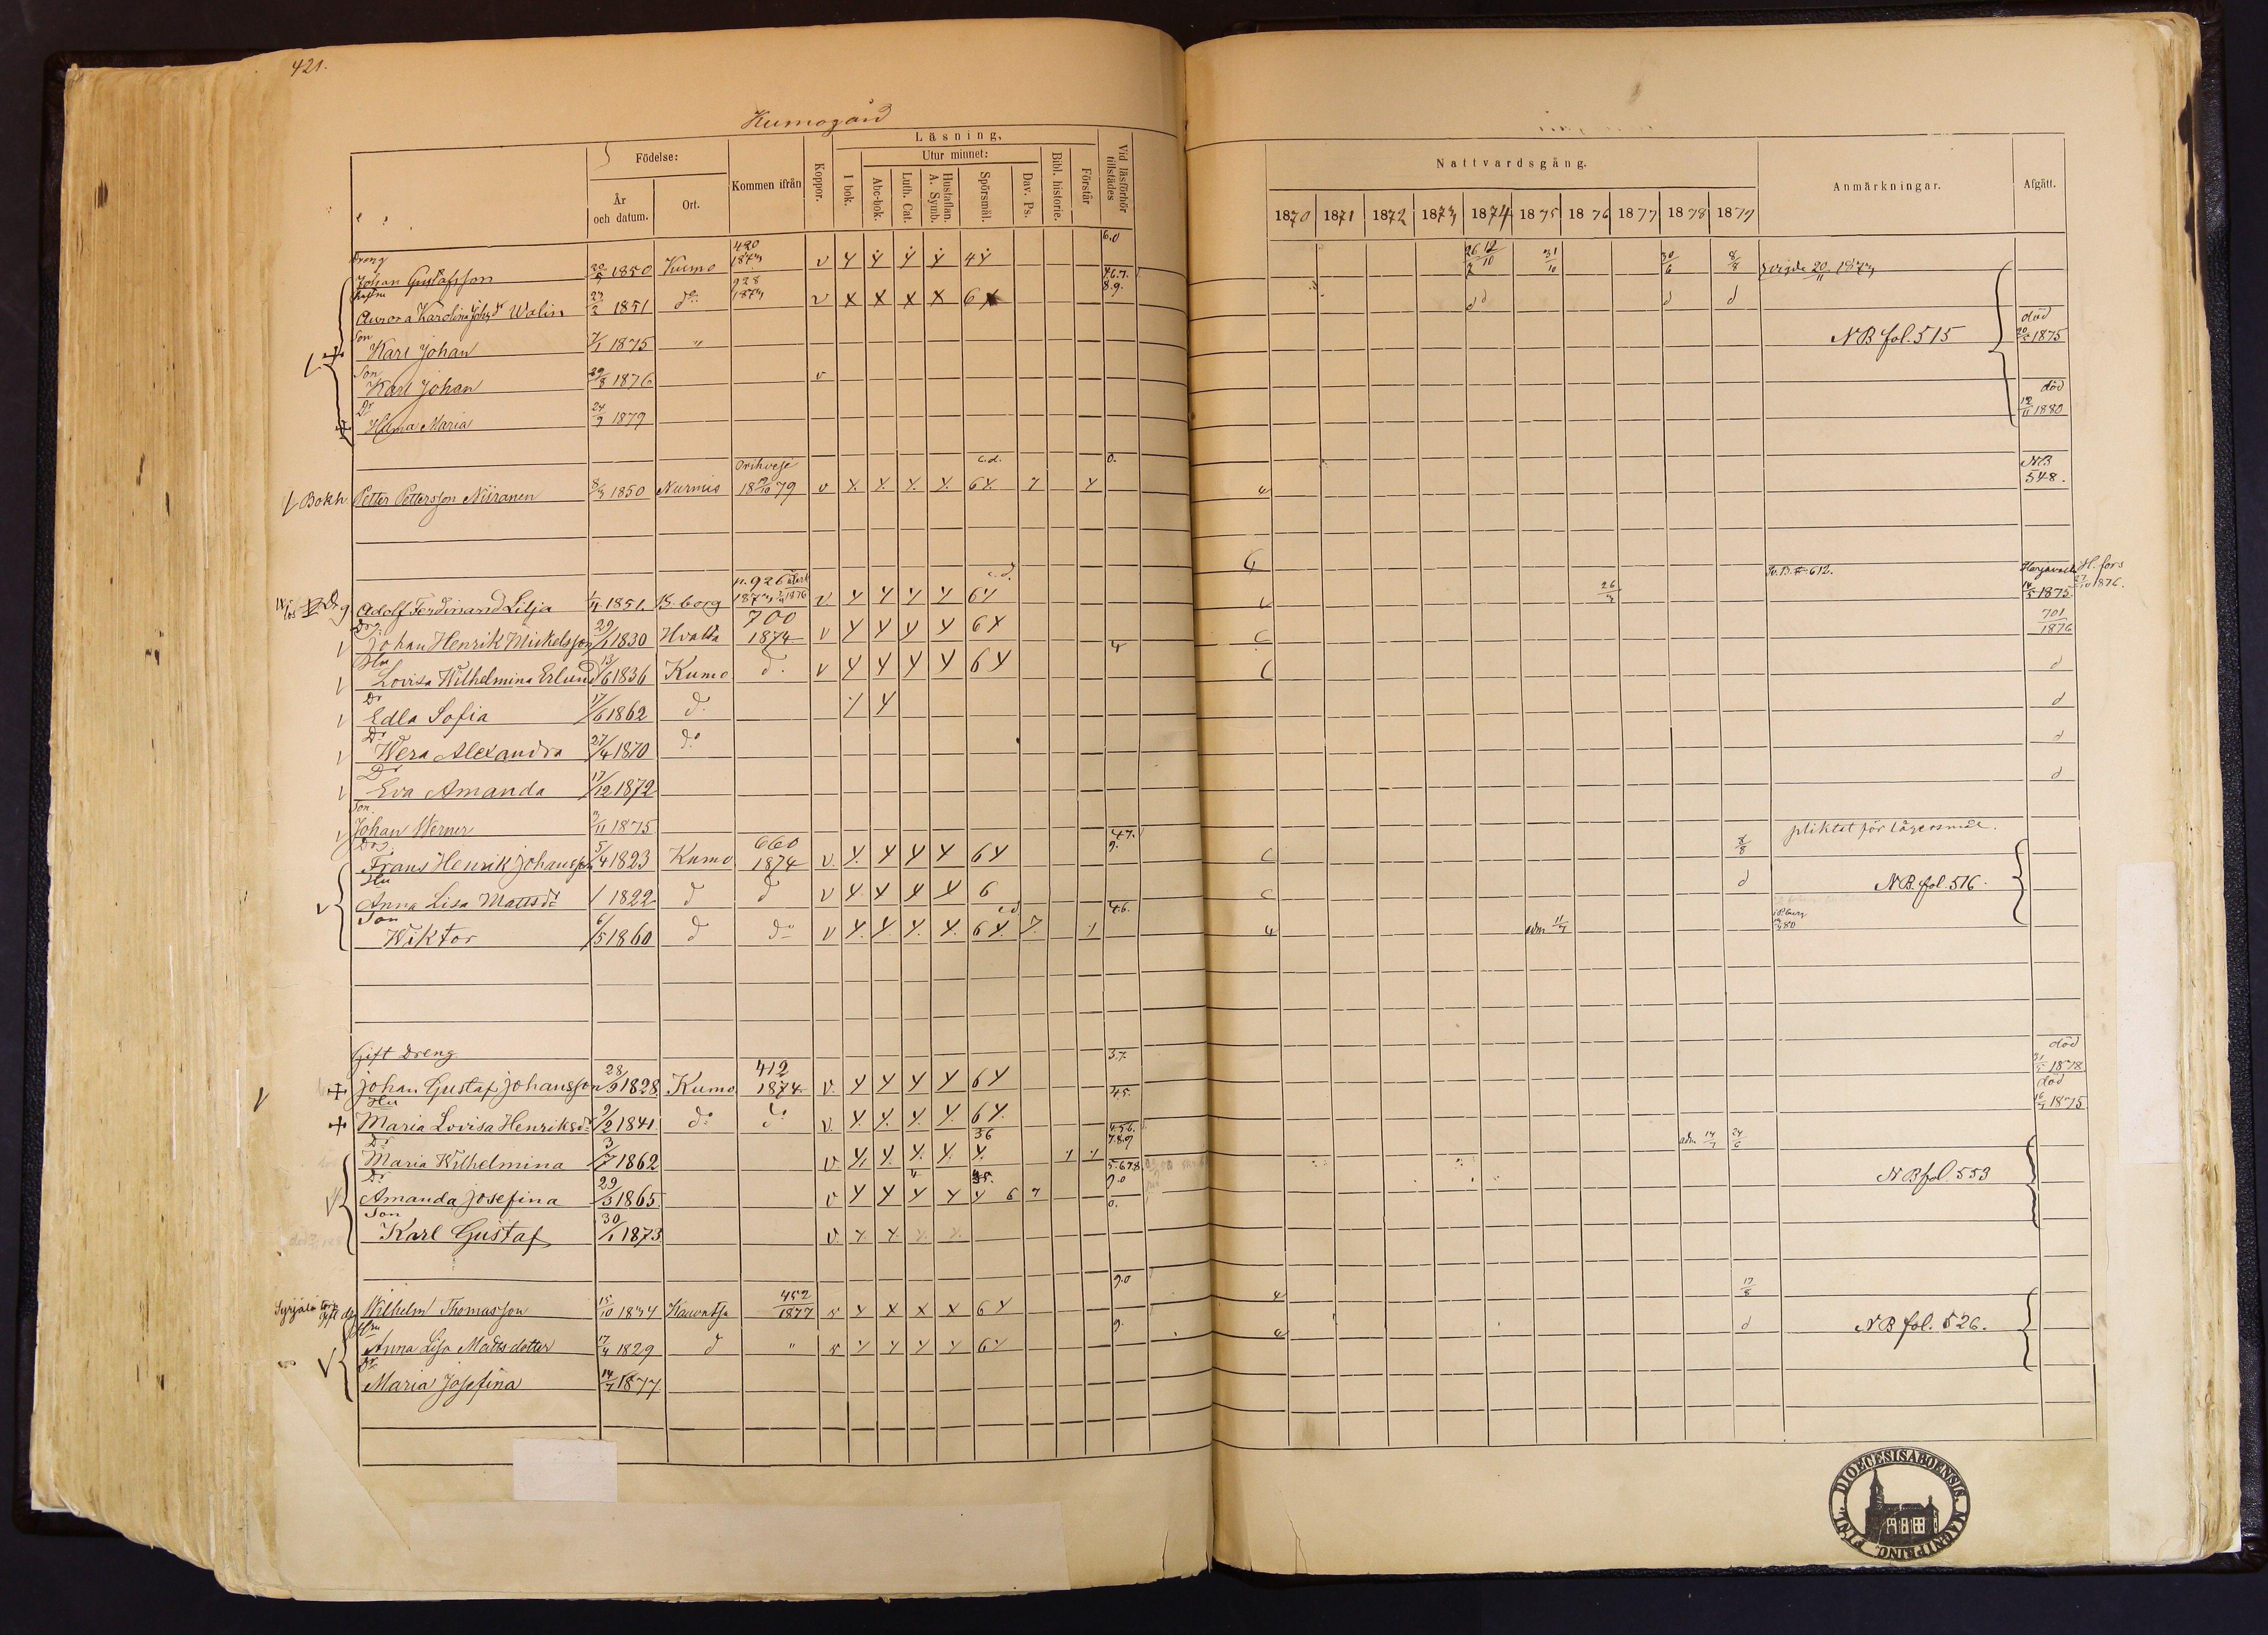 421.
Kumogård
Födelse:
År och datum.
Ort.
Kommen ifrån
Koppor.
Läsning,
I bok.
Utur minnet:
Abc-bok.
Luth. Cat.
Hustaflan. A. Symb.
Spörsmål.
Dav. Ps.
Bibl. historie.
Förstår
Vid läsförhör tillstädes
Nattvardsgång.
1870 1871 1872 1873 1874 1875 1876 1877 1878 1879
Anmärkningar.
Afgått.
Dreng 420 6.0
Johan Gustafsson 1850 Kumo 1873 v 26/7 12/10 31/10 30/6 8/8 vigde 20/11 1873
Hustru 928 4.6.7.
Aurora Karolina Johs dr Walin 23/2 1851 do 1873 v 6 8.9. d d d d
Son död
Karl Johan 7/1 1875 " NB fol. 515 1875
Son
Karl Johan 29/8 1876 v
Dr död
Hilma Maria 24/9 1879 12/11 1880
Orihvesi c.d. 0. NB
Bokh Petter Pettersson Niiranen 8/3 1850 Nurmis 18 79 v 6 548.
n. 926 c.d. 612. H.fors
Drg Adolf Ferdinand Lilja 1/4 1851 B.borg 1873 v 6 26/3 14/5 1875 1876.
Drg 700 701
Johan Henrik Mickelsson 29/1 1830 Hvatta 1874 v 6 1876
Hu 4
Lovisa Wilhelmina Erlund 13/6 1836 Kumo d:o v 6 d
Dr
Edla Sofia 17/6 1862 d:o d
Dr
Wera Alexandra 27/4 1870 d:o d
Dr
Eva Amanda 17/12 1872 d
Son
Johan Werner 3/11 1875 pliktat för lägersmål.
Drg 660 4.7. 9.
Frans Henrik Johansson 5/4 1823 Kumo 1874 v. 6 8/8
Hu
Anna Lisa Mattsdr 1822 d d v 6 d NB. fol. 516.
Son c.d 4.6.
Wiktor 6/5 1860 d d:o v 6 adm 11/7 80
Gift Dreng 3.7. död
Johan Gustaf Johansson 28/9 1828 Kumo 412 1874 v. 6 31/5 1878
Hu 4.5. död
Maria Lovisa Henriksdr 9/2 1841 d:o d:o v. 6 16/7 1875
Dr 36 4.5.6. 7.8.9
Maria Wilhelmina 3/7 1862 v. adm 14/7 24/6
Dr 5.6.7.8 9.0
Amanda Josefina 29/3 1865 v 6 7 NB fol. 553
Son 0.
Karl Gustaf 30/1 1873 v.
452 9.0
Syrjälä torp gift drg Wilhelm Thomasson 15/10 1834 Kauvatsa 1877 6 17/8
Hru 9.
Anna Lisa Mattsdotter 17/4 1829 d " 6 d NB fol. 526.
Dr
Maria Josefina 14/7 1877
DIOECESIS ABOENSIS. MAGNI PRINC. FINL.